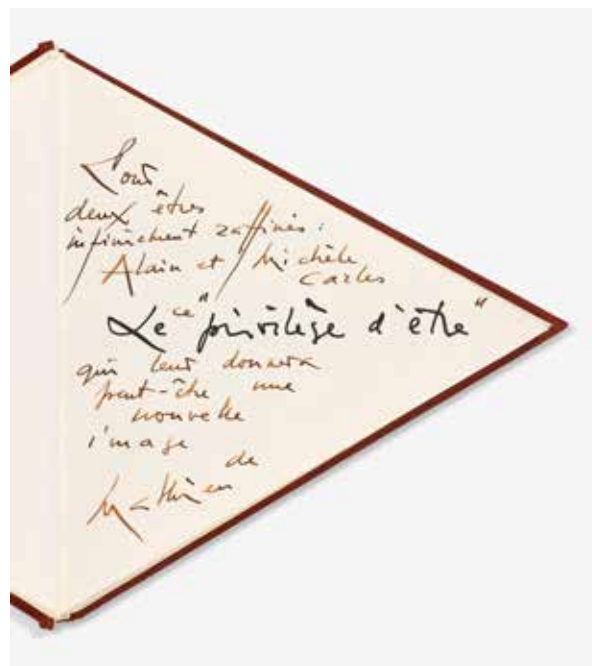 Pour
deux êtres
infiniment raffinés :
Alain et Michèle
Carles
Le ce "privilège d'être"
qui leur donnera
peut-être une
nouvelle
image
de
Mathieu